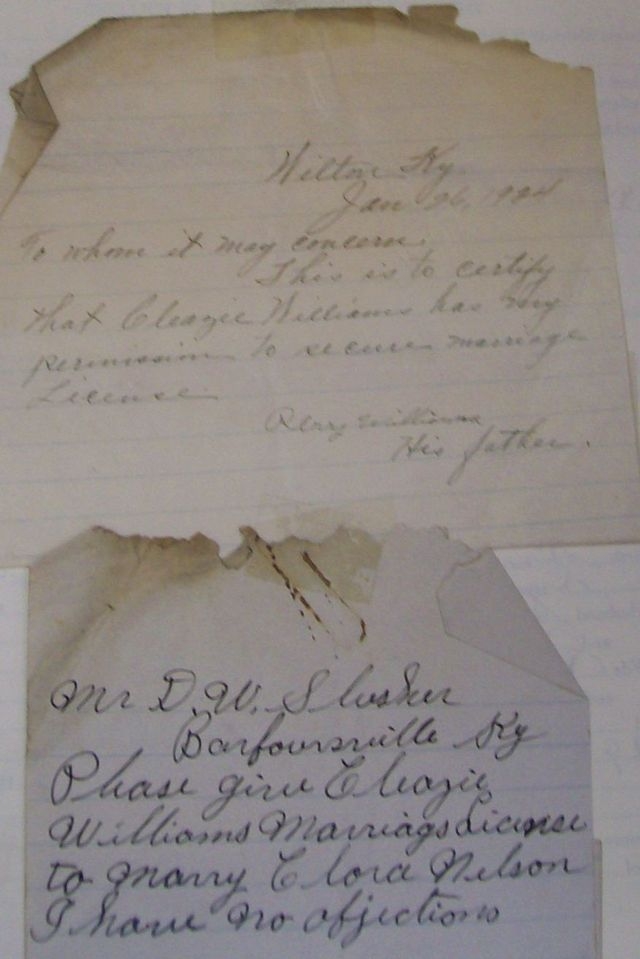 Wilton Ky.
Jan 26, 1924
To whom it may concern.
This is to certify
that Cleazie Williams has my
permission to secure marriage
License.
Perry Williams
His father.
Mr D. W. Slusher
Barfoursville Ky
Please give Cleazie
Williams Marriags License
to marry Clora Nelson
I have no ofjections